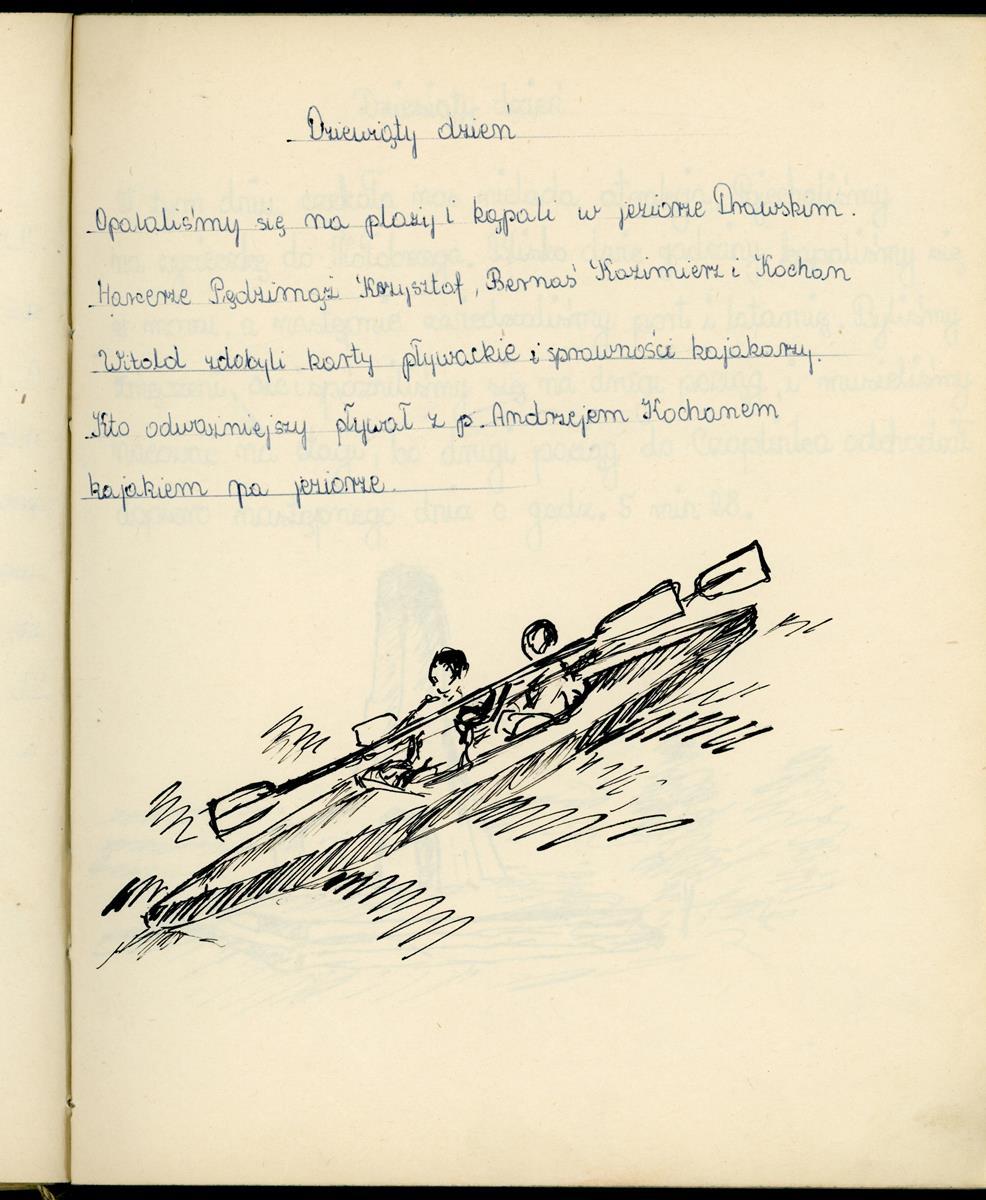 Dziewiąty dzień
Opalaliśmy się na plaży i kąpali w jeziorze Drawskim.
Harcerze Pędzimąż Krzysztof, Bernaś Kazimierz i Kochan
Witold zdobyli karty pływackie i sprawności kajakarzy.
Kto odważniejszy pływał z p. Andrzejem Kochanem
kajakiem po jeziorze.